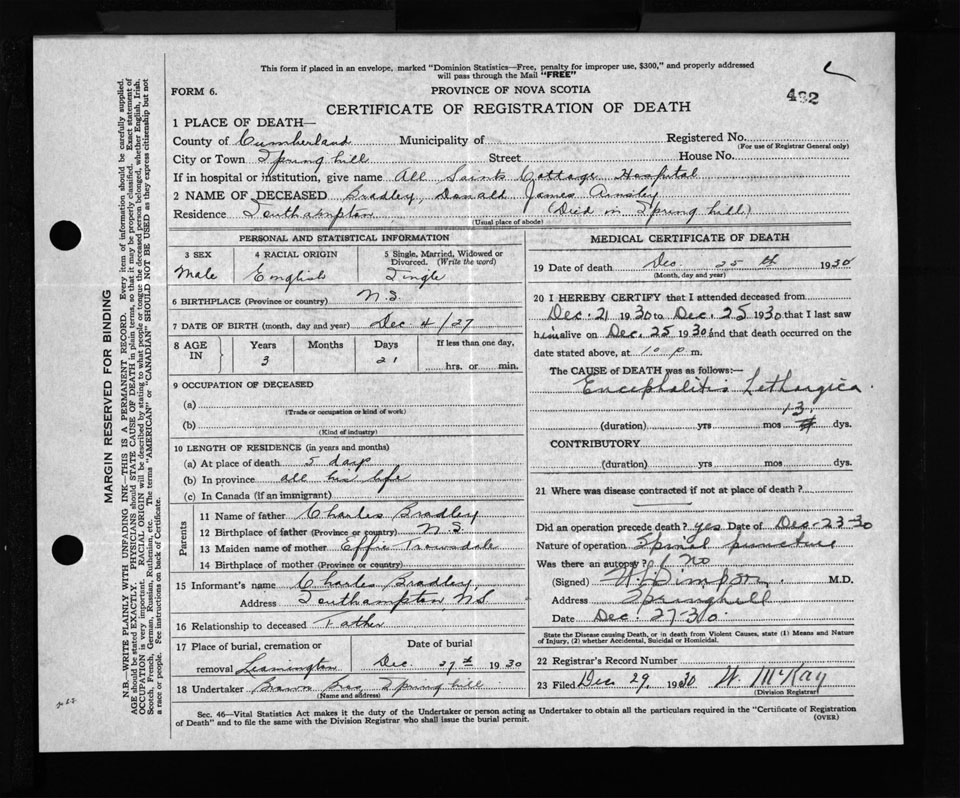 This form if placed in an envelope, marked "Dominion Statistics—Free, penalty for improper use, $300," and properly addressed
will pass through the Mail "FREE"
FORM 6.
PROVINCE OF NOVA SCOTIA
492
CERTIFICATE OF REGISTRATION OF DEATH
1 PLACE OF DEATH—
County of Cumberland Municipality of Registered No.
(For use of Registrar General only)
City or Town Springhill Street House No.
If in hospital or institution, give name All Saints Cottage Hospital
2 NAME OF DECEASED Bradley, Donald James Ainsley
Residence Southampton (Died in Springhill)
(Usual place of abode)
PERSONAL AND STATISTICAL INFORMATION
3 SEX 4 RACIAL ORIGIN 5 Single, Married, Widowed or
Divorced. (Write the word)
Male English Single
6 BIRTHPLACE (Province or country) N.S.
7 DATE OF BIRTH (month, day and year) Dec 4/27
8 AGE Years Months Days If less than one day,
IN 3 21 hrs. or min.
9 OCCUPATION OF DECEASED
(a)
(Trade or occupation or kind of work)
(b)
(Kind of industry)
10 LENGTH OF RESIDENCE (in years and months)
(a) At place of death 5 days
(b) In province all his life
(c) In Canada (if an immigrant)
Parents
11 Name of father Charles Bradley
12 Birthplace of father (Province or country) N S
13 Maiden name of mother Effie Trowsdale
14 Birthplace of mother (Province or country)
15 Informant's name Charles Bradley
Address Southampton N S
16 Relationship to deceased Father
17 Place of burial, cremation or Date of burial
removal Leamington Dec 27th 1930
18 Undertaker Brown Bros Springhill
(Name and address)
MEDICAL CERTIFICATE OF DEATH
19 Date of death Dec. 25th 1930
(Month, day and year)
20 I HEREBY CERTIFY that I attended deceased from
Dec. 21 1930 to Dec. 25 1930 that I last saw
him alive on Dec. 25 1930 and that death occurred on the
date stated above, at 10 p m.
The CAUSE of DEATH was as follows:—
Encephalitis Lethargica.
13
(duration) yrs mos dys.
CONTRIBUTORY
(duration) yrs mos dys.
21 Where was disease contracted if not at place of death?
Did an operation precede death? yes Date of Dec-23-30
Nature of operation Spinal puncture
Was there an autopsy? No
(Signed) M.D.
Address Springhill
Date Dec. 27-30.
State the Disease causing Death, or in death from Violent Causes, state (1) Means and Nature
of Injury, (2) whether Accidental, Suicidal or Homicidal.
22 Registrar's Record Number
23 Filed Dec 29, 1930 W. McKay
(Division Registrar)
Sec. 46—Vital Statistics Act makes it the duty of the Undertaker or person acting as Undertaker to obtain all the particulars required in the "Certificate of Registration
of Death" and to file the same with the Division Registrar who shall issue the burial permit.
(OVER)
MARGIN RESERVED FOR BINDING
N.B.—WRITE PLAINLY WITH UNFADING INK—THIS IS A PERMANENT RECORD. Every item of information should be carefully supplied.
AGE should be stated EXACTLY. PHYSICIANS should STATE CAUSE OF DEATH in plain terms, so that it may be properly classified. Exact statement of
OCCUPATION is very important. RACIAL ORIGIN will be described by stating to what people or tongue the deceased person belonged, whether English, Irish,
Scotch, French, German, Russian, Ruthenian, etc. The terms "AMERICAN" or "CANADIAN" SHOULD NOT BE USED as they express citizenship but not
a race or people. See instructions on back of Certificate.